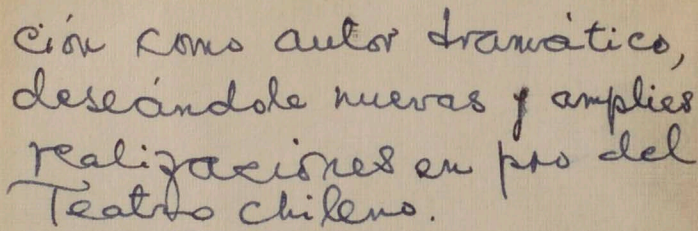 ción como autor dramático,
deseándole nuevas y amplias
realizaciones en pro del
Teatro chileno.